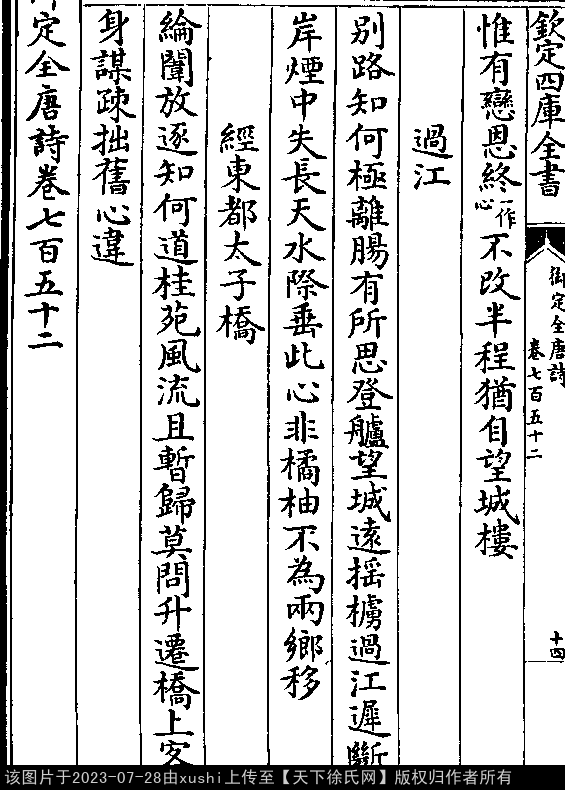 欽定四庫全書
御定全唐詩
卷七百五十二
十四
惟有戀恩終一作心不改半程猶自望城樓
過江
別路知何極離腸有所思登艫望城遠揺櫓過江遲斷
岸煙中失長天水際垂此心非橘柚不為兩鄉移
經東都太子橋
綸闈放逐知何道桂苑風流且暫歸莫問升遷橋上客
身謀疎拙舊心違
定全唐詩卷七百五十二
该图片于2023-07-28由xushi上传至【天下徐氏网】版权归作者所有